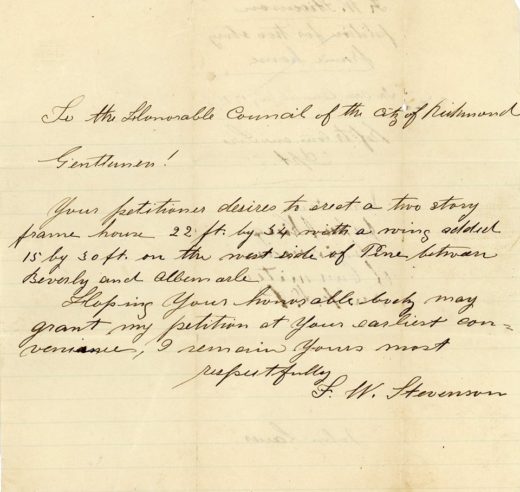 To the Honorable Council of the city of Richmond
Gentlemen!
Your petitioner desires to erect a two story
frame house 22 ft. by 34 with a wing added
15 by 30 ft. on the west side of Pine between
Beverly and Albemarle
Hoping Your honorable body may
grant my petition at Your earliest con=
venience, I remain Yours most
respectfully
F. W. Stevenson